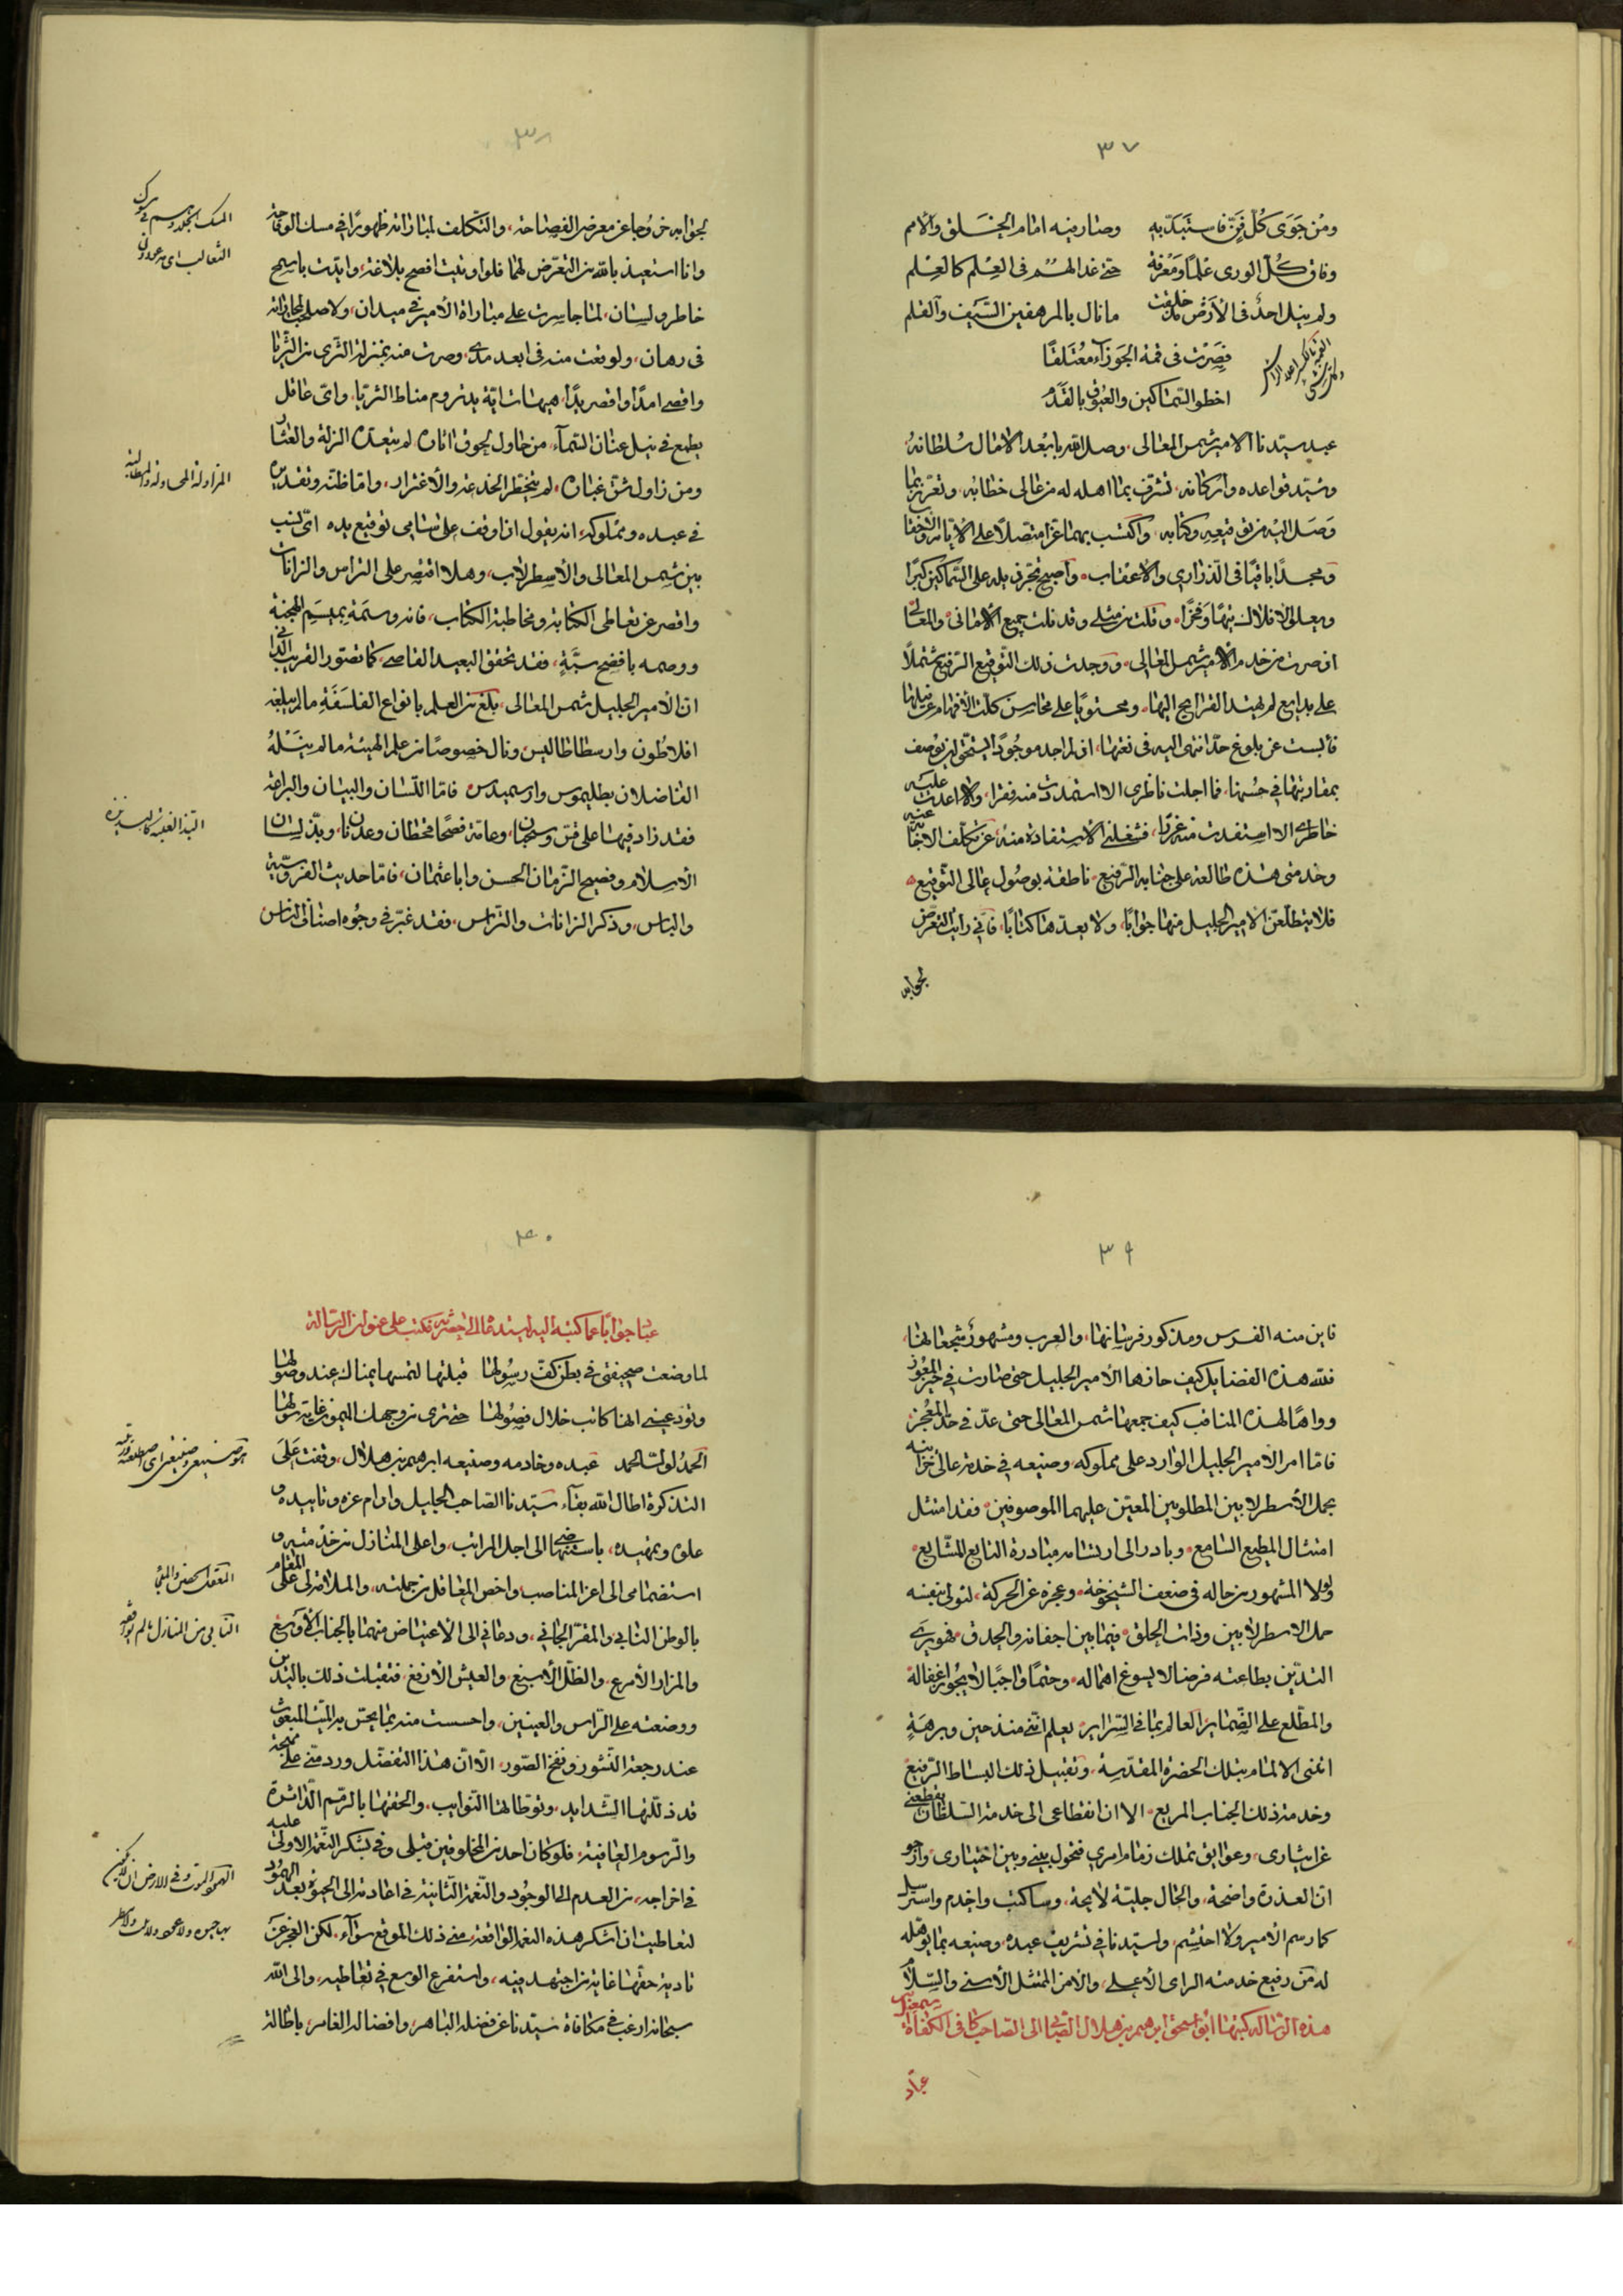 ٣٧
ومن حوى كل فن فاستبد به وصار فيه امام الخلق والأمم
وفاق كل الورى علما ومعرفة حتى غدا لهم في العلم كالعلم
ولم ينل احد في الأرض مذ خلقت ما نال بالمرهفين السيف والقلم
فصرت في قمة الجوزاء معتلقا
اخطو السماكين والعيوق بالقدم
عبد سيدنا الامير شمس المعالي، وصل الله بابعد الامال سلطانه،
وشيد قواعده واركانه، تشرف بما اهله له من عالي خطابه، وتعزز بما
وصل اليه من توقيعه وكتابه، واكتسب بهما عزا متصلا على الايام والاحقاب
ومجدا باقيا في الذراري والاعقاب، واصبح يجر ذيله على السماكين كبرا
ويعلو الافلاك تيها وفخرا، وقلت من مثلي وقد نلت جميع الاماني والمعالي
اذ صرت من خدم الامير شمس المعالي، ووجدت ذلك التوقيع الرفيع مشتملا
على بدايع لم يهتد القرايح اليها، ومحتويا على محاسن كلت الافهام عن نيلها
فأيست عن بلوغ حد انتهى اليه في نعتها، اذ لم اجد موجودا يستحق ان يوصف
بمقاربتها في حسنها، فما اجلت ناظري الا استمددت منه فقرا، ولا اعدت عليه
خاطري الا استفدت منه غررا، فشغلني الاستفادة منه عن تكلف الاجابة عنه
وخدمتي هذه طالعة على جنابه الرفيع، ناطقة بوصول عالي التوقيع
فلا يتطلعن الامير الجليل منها جوابا، ولا يعدها كتابا، فاني رايت التعرض
لجوابه
٣٨
لجوابه خروجا عن معرض الفصاحة، والتكلف لمباراته ظهورا في مسك الوقاحة
وانا استعيذ بالله من التعرض لهما فلو اوتيت افصح بلاغة، وايدت باسمح
خاطر ولسان، لما جاسرت على مباراة الأمير في ميدان، ولا صلحت لمجاراته
في رهان، ولوقعت منه في ابعد مدى، وصرت منه بمنزلة الثرى من الثريا
واقصى امدا واقصر يدا، هيهات اية يد تروم مناط الثريا، واي عاقل
يطمع في نيل عنان السماء، من حاول لحوق اثاره لم يتعده الزلة والعثار
ومن زاول شق غباره، لم يتخطه الخدعة والأغترار، واما ظنه وتقديره
في عبده ومملوكه، انه يقول اذا وقف على سامي توقيع يده اي نسب
بين شمس المعالي والأسطرلاب، وهلا اقتصر على التراس والزانات
واقصر عن تعاطي الكتابة ومخاطبة الكتاب، فانه وسمه بميسم الهجنة
ووصمه بافضح سبة، فقد تحقق البعيد القاصي، كما تصور القريب الداني
ان الأمير الجليل شمس المعالي، بلغ من العلم بانواع الفلسفة ما لم يبلغه
افلاطون وارسطاطاليس ونال خصوصا من علم الهيئة ما لم ينله
الفاضلان بطليموس وارسميدس، فاما اللسان والبيان والبراعة
فقد زاد فيها على قس وسحبان، وعامة فصحا قحطان وعدنان، وبذ لسان
الاسلام وفصيح الزمان الحسن وابا عثمان، فاما حديث الفروسية
والباس، وذكر الزانات والتراس، فقد غبر في وجوه اصناف الناس
المسك الجلد
الثعالب اي يعدون
المزاولة المحاولة والمطالبة
البذ الغلبة
٣٩
فاين منه الفرس ومذكور فرسانها، والعرب ومشهور شجعانها،
فلله هذه الفضايل كيف حازها الأمير الجليل حتى صارت في حيز المعوز
وواها لهذه المناقب كيف جمعها شمس المعالي حتى عد في حد المعجز
فاما امر الأمير الجليل الوارد على مملوكه، وصنيعه في خدمة عالي خزانته
بحمل الأسطرلابين المطلوبين المعين عليهما الموصوفين، فقد امتثل
امتثال المطيع السامع، وبادر الى ارتسامه مبادرة التابع للشايع
ولولا المشهور من حاله في ضعف الشيخوخة، وعجزه عن الحركة، لتولى بنفسه
حمل الاسطرلابين وذات الحلق، فيما بين اجفانه والحدق، فهو يرى
التدين بطاعته فرضا لا يسوغ اهماله، وحتما واجبا لا يجوز اغفاله
والمطلع على الضماير، العالم بما في السراير، يعلم انني منذ حين وبرهة
اتمنى الالمام بتلك الحضرة المقدسة، وتقبيل ذلك البساط الرفيع
وخدمة ذلك الجناب المريع، الا ان انقطاعي الى خدمة السلطان يقطعني
عن ايثاري، وعوايق تملك زمام امري فتحول بيني وبين اختياري، وارجو
ان العذرة واضحة، والحال جلية لايحة، وساكتب واخدم واسترسل
كما رسم الامير ولا احتشم، ولسيدنا في تشريف عبده، وصنيعه بما يؤهله
له من رفيع خدمته الراي الأعلى، والامر الممتثل الأسنى والسلام
هذه الرسالة كتبها ابو اسحق ابراهيم بن هلال الصابي الى الصاحب كافي الكفاة اسمعيل بن
عباد
٤٠
عباد جوابا عما كتبه اليه استدعاء الى حضرته فكتب على عنوان الرسالة
لما وضعت صحيفتي في بطن كف رسولها قبلتها لتمسها يمناك عند وصولها
وتود عيني انها كانت خلال فصولها حتى ترى من وجهك الميمون غاية سولها
الحمد لولي الحمد عبده وخادمه وصنيعه ابراهيم بن هلال، وقفت على
التذكرة اطال الله بقاء سيدنا الصاحب الجليل وادام عزه وتاييده و
علوه وتمهيده، باستنهاضي الى اجل المراتب، واعلى المنازل من خدمته، و
استضمامي الى اعز المناصب، واخص المعاقل من جملته، والملامة لي على المقام
بالوطن النابي، والمقر الجافي، ودعاني الى الأعتياض منهما بالجناب الأوسع
والمزار الأمرع، والظل الأسبغ، والعيش الأرفغ، فتقبلت ذلك باليدين
ووضعته على الراس والعينين، واحسست منه بما يحس به الميت المبعوث
عند رجعة النشور ونفخ الصور، الا ان هذا التفضل ورد مني على مهجة
قد ذللتها الشدايد، وتوطاتها النوايب، والحقتها بالرمم الداثرة
والرسوم العافية، فلو كان احد من المخلوقين قبلي وفى بشكر النعمة الاولى عليه
في اخراجه، من العدم الى الوجود والنعمة الثانية في اعادته الى الحيوة بعد الهمود
لتعاطيت ان اشكر هذه النعم الواقعة مني ذلك الموقع سواء، لكن العجز عن
تادية حقها غاية من اجتهد فيه، واستفرغ الوسع في تعاطيه، والى الله
سبحانه ارغب في مكافاة سيدنا عن فضله الباهر، وافضاله الغامر، باطالة
المعقل الحصن والملجأ
النابي من المنازل ما لم يوافقه
الهمود الموت